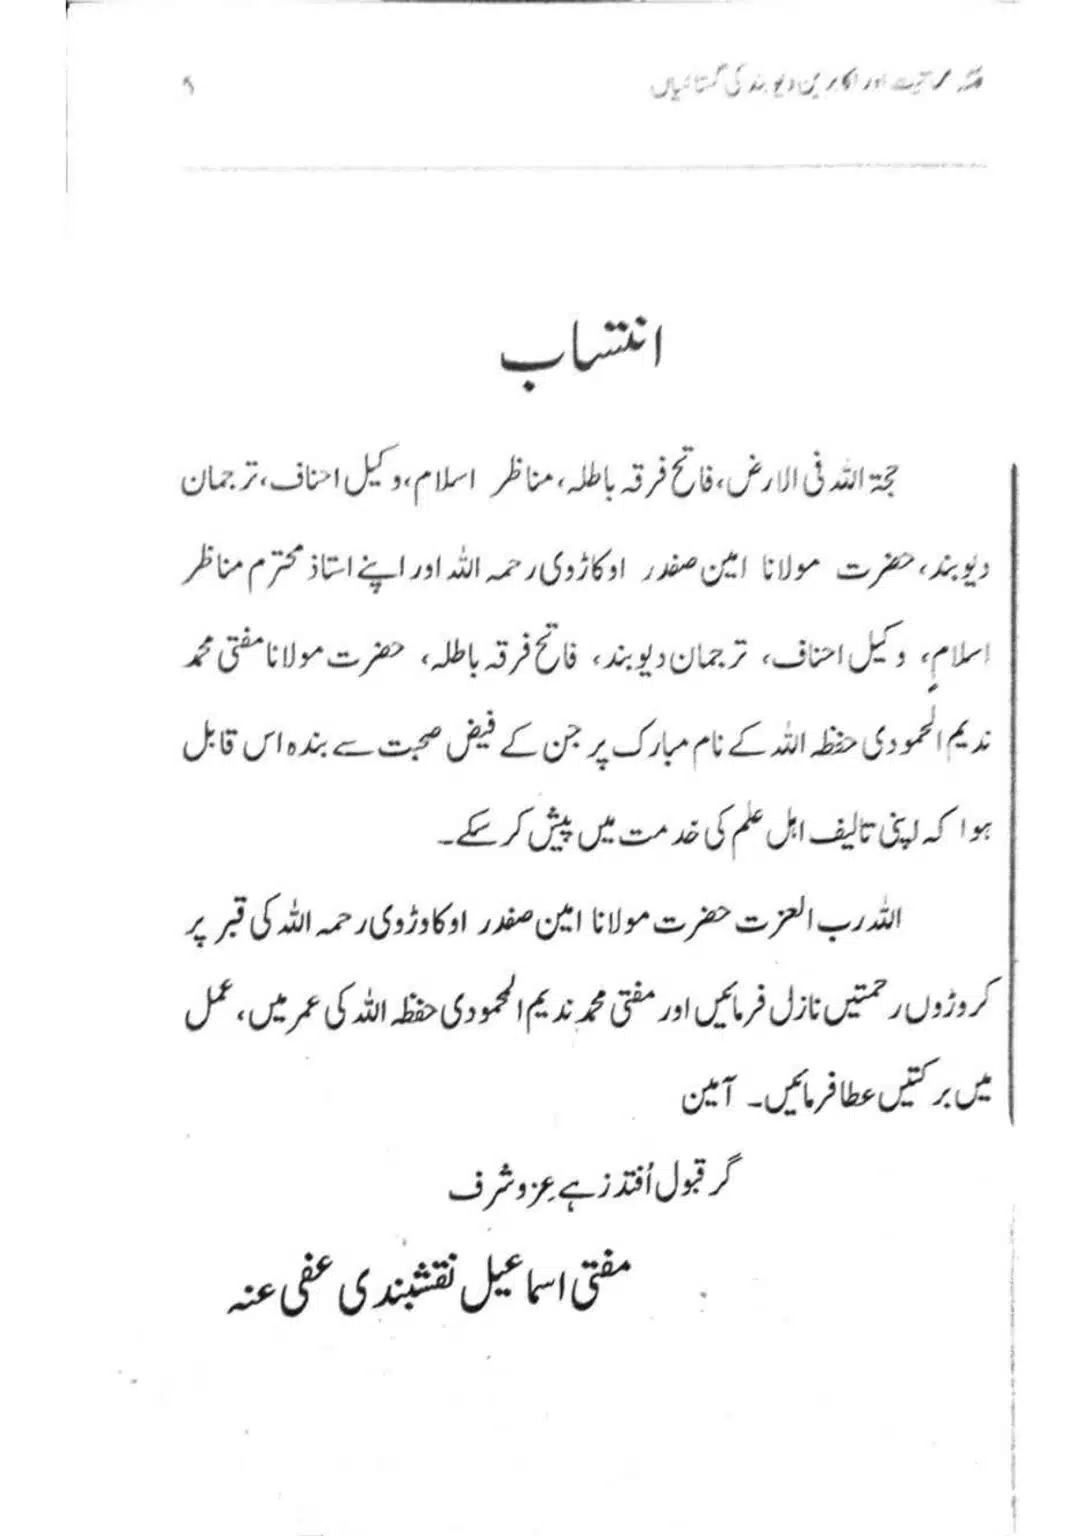 اور اکابرین دیوبند کی گستاخیاں
انتساب
حجۃ اللہ فی الارض، فاتح فرقہ باطلہ، مناظر اسلام، وکیل احناف، ترجمان
دیوبند، حضرت مولانا امین صفدر اوکاڑوی رحمہ اللہ اور اپنے استاذ محترم مناظر
اسلام، وکیل احناف، ترجمان دیوبند، فاتح فرقہ باطلہ، حضرت مولانا مفتی محمد
ندیم المحمودی حفظہ اللہ کے نام مبارک پر جن کے فیض صحبت سے بندہ اس قابل
ہوا کہ اپنی تالیف اہل علم کی خدمت میں پیش کر سکے۔
اللہ رب العزت حضرت مولانا امین صفدر اوکاوڑوی رحمہ اللہ کی قبر پر
کروڑوں رحمتیں نازل فرمائیں اور مفتی محمد ندیم المحمودی حفظہ اللہ کی عمر میں، عمل
میں برکتیں عطا فرمائیں۔ آمین
گر قبول اُفتد زہے عِز و شرف
مفتی اسماعیل نقشبندی عفی عنہ